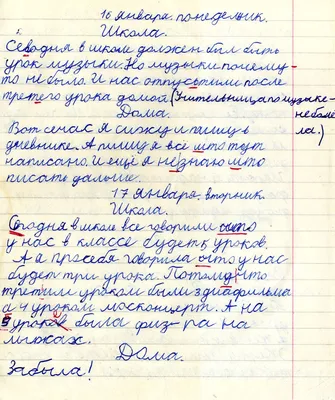 16 января понедельник.
Школа.
Севодня в школе должен был быть
урок музыки. Но музыки почему-
то не было. И нас отпустили после
третего урока домой (Учительница по музыке-
Дома. не была
Вот сечас я сижу и пишу в
дневнике. А пишу я всё што тут
написано. И ещё я незнаю што
писать дальше.
17 января, вторник.
Школа.
Сгодня в школе все говорили што
у нас в классе будет 5 уроков.
А я про себя говорила што у нас
будет три урока. Потому што
третим уроком были 3 диафильма
а 4 уроком москонцерт. А на
5 уроке была физ-ра на
лыжах.
Дома.
Забыла!